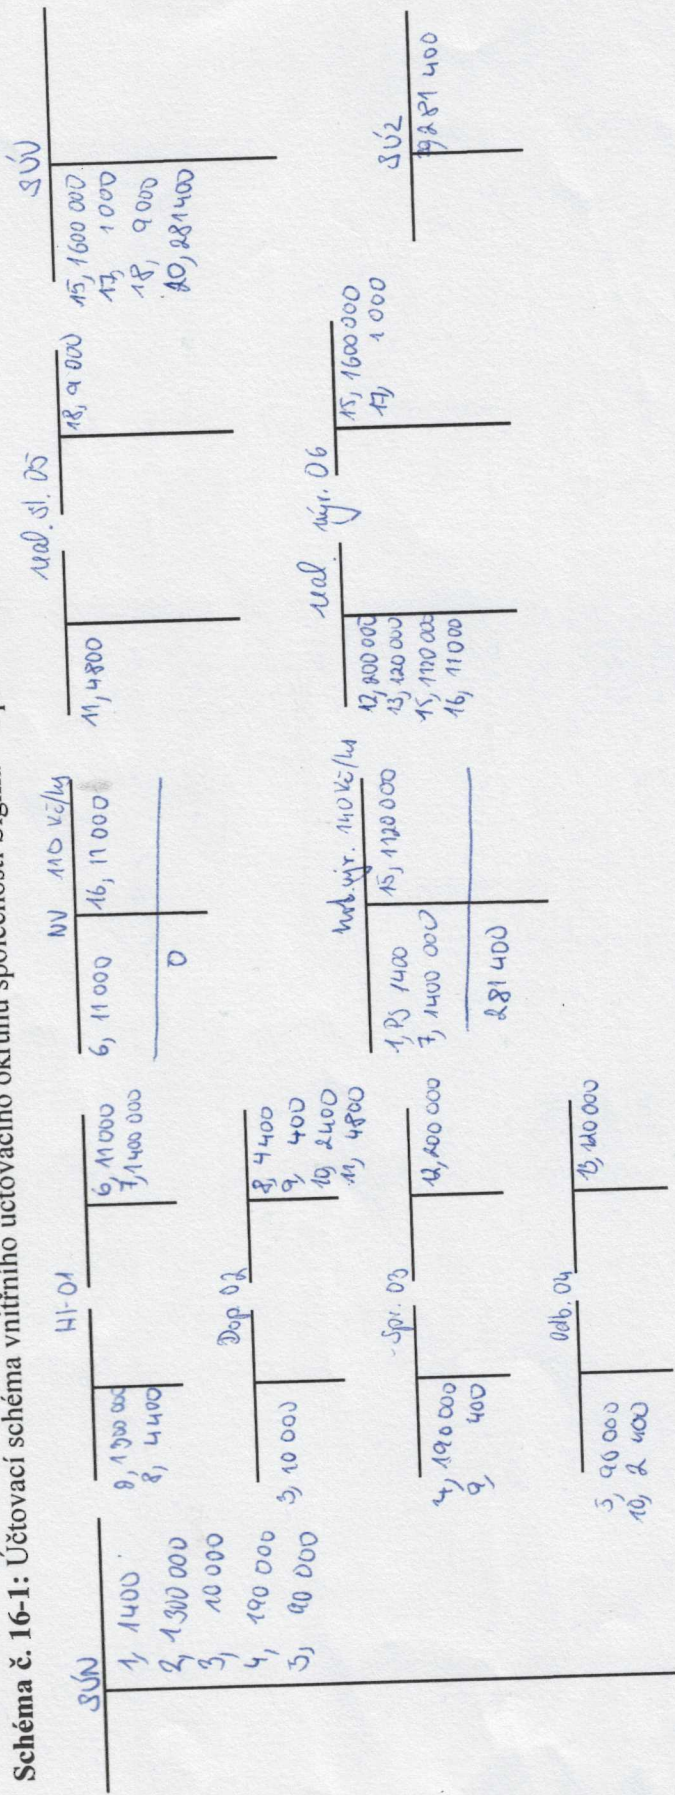 Schéma č. 16-1: Účtovací schéma vnitřního účtovacího okruhu společnosti
SÚN
1, 1400
2, 1300 000
3, 10 000
4, 190 000
5, 90 000
HI-01
2, 1300 000
8, 4400
6, 11000
7, 1400 000
Dop. 02
3, 10 000
8, 4400
9, 400
10, 2400
11, 4800
Spr. 03
4, 190 000
9, 400
12, 200 000
Odb. 04
5, 90 000
10, 2 400
13, 120 000
NV 110 Kč/ks
6, 11 000
16, 11 000
0
výr. 140 Kč/ks
1, PS 1400
7, 1400 000
15, 1120 000
281 400
sl. 05
11, 4800
18, 9 000
výr. 06
12, 200 000
13, 120 000
15, 1120 000
16, 11000
15, 1600 000
17, 1 000
SÚV
15, 1600 000
17, 1000
18, 9000
20, 281400
SÚZ
281 400